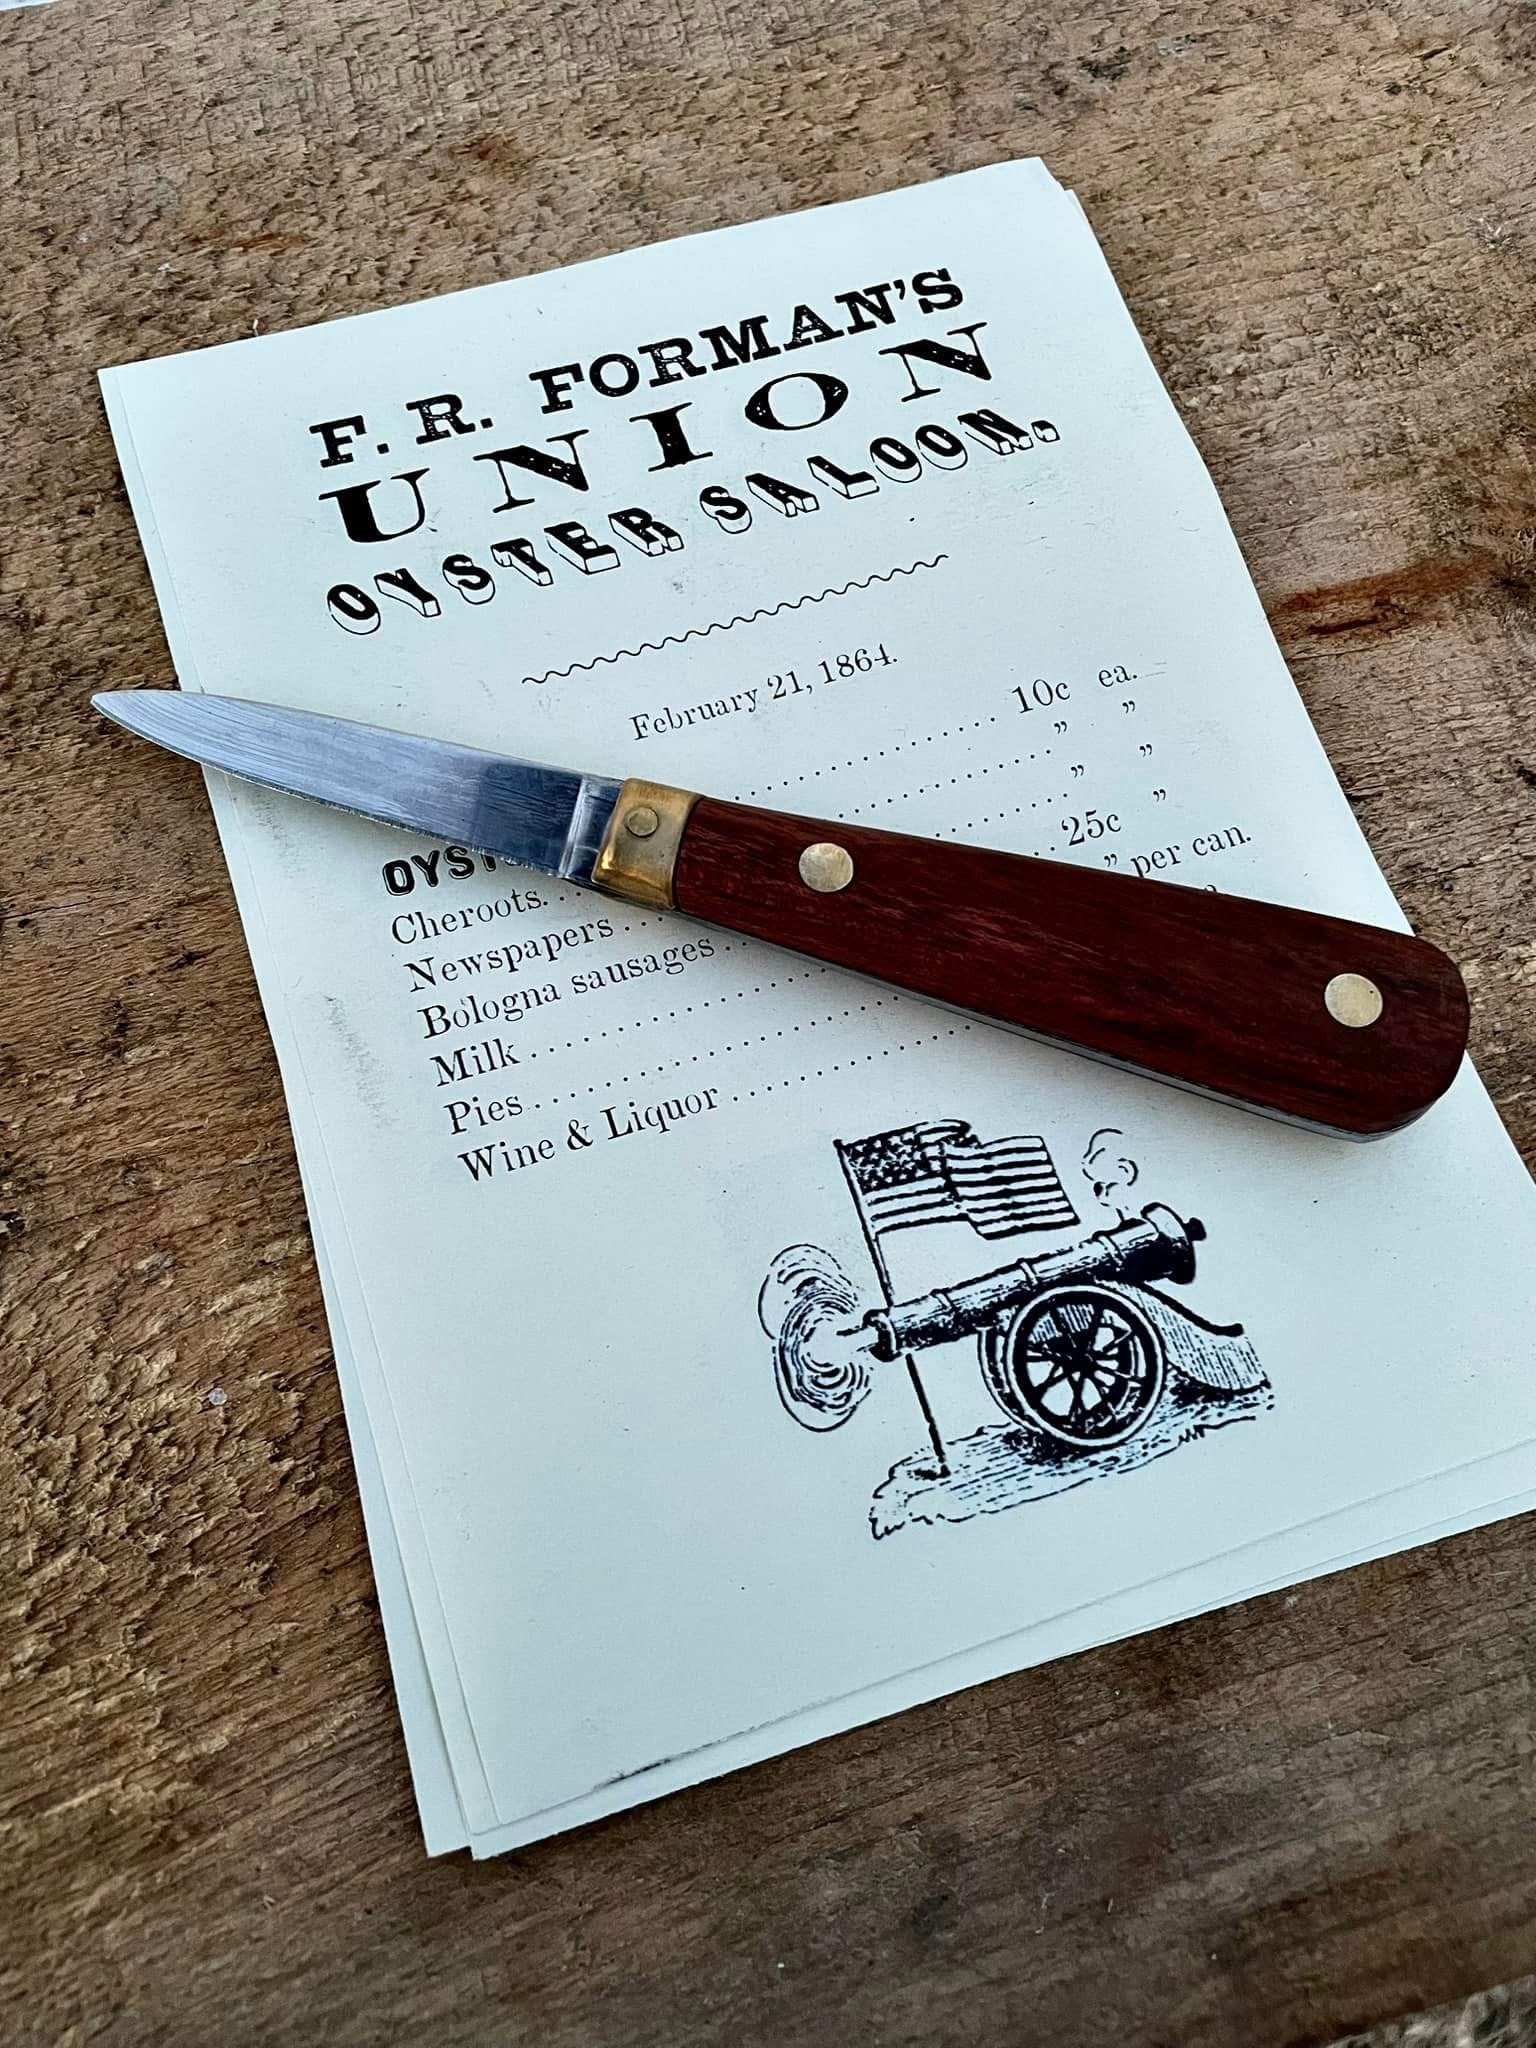 F. R. FORMAN'S
UNION
OYSTER SALOON.
February 21, 1864.
10c ea.
Cheroots ” ”
Newspapers ” ”
Bologna sausages 25c ”
Milk ” per can.
Pies
Wine & Liquor